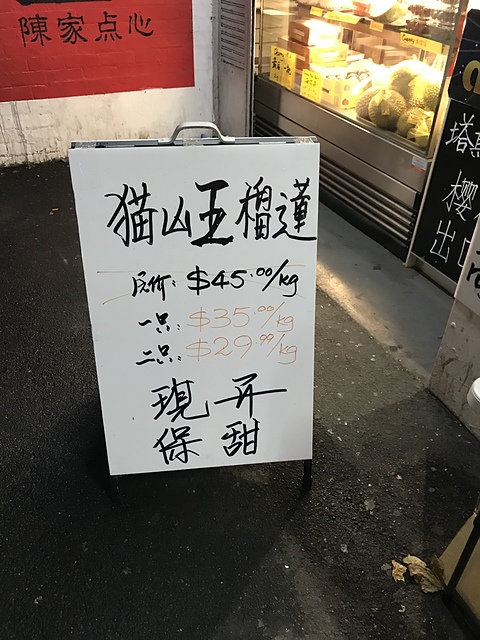 陳家点心
猫山王榴蓮
原价: $45.00/kg
一只: $35.00/kg
二只: $29.99/kg
現开
保甜
塔
樱
出口